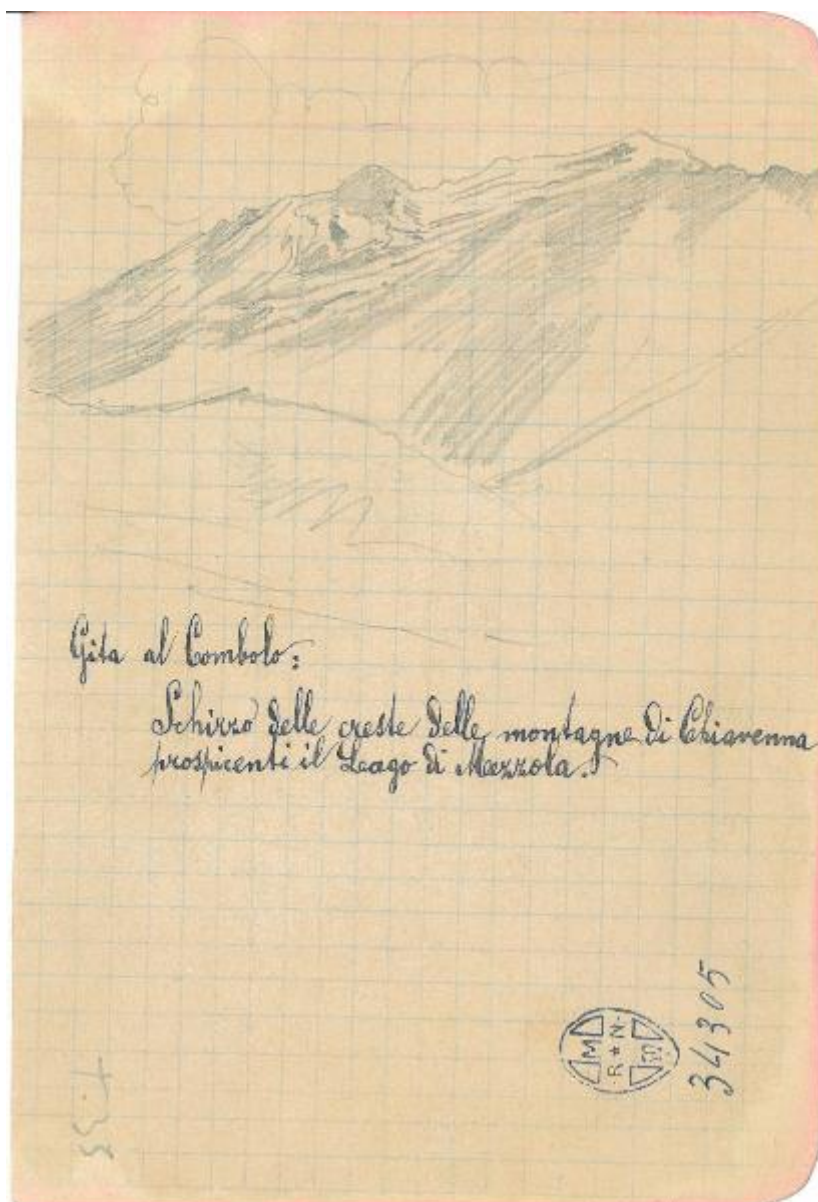 Gita al Combolo:
Schizzo delle creste delle montagne di Chiavenna
prospicenti il Lago di Mezzola.
M
R * N
34305
T. 35